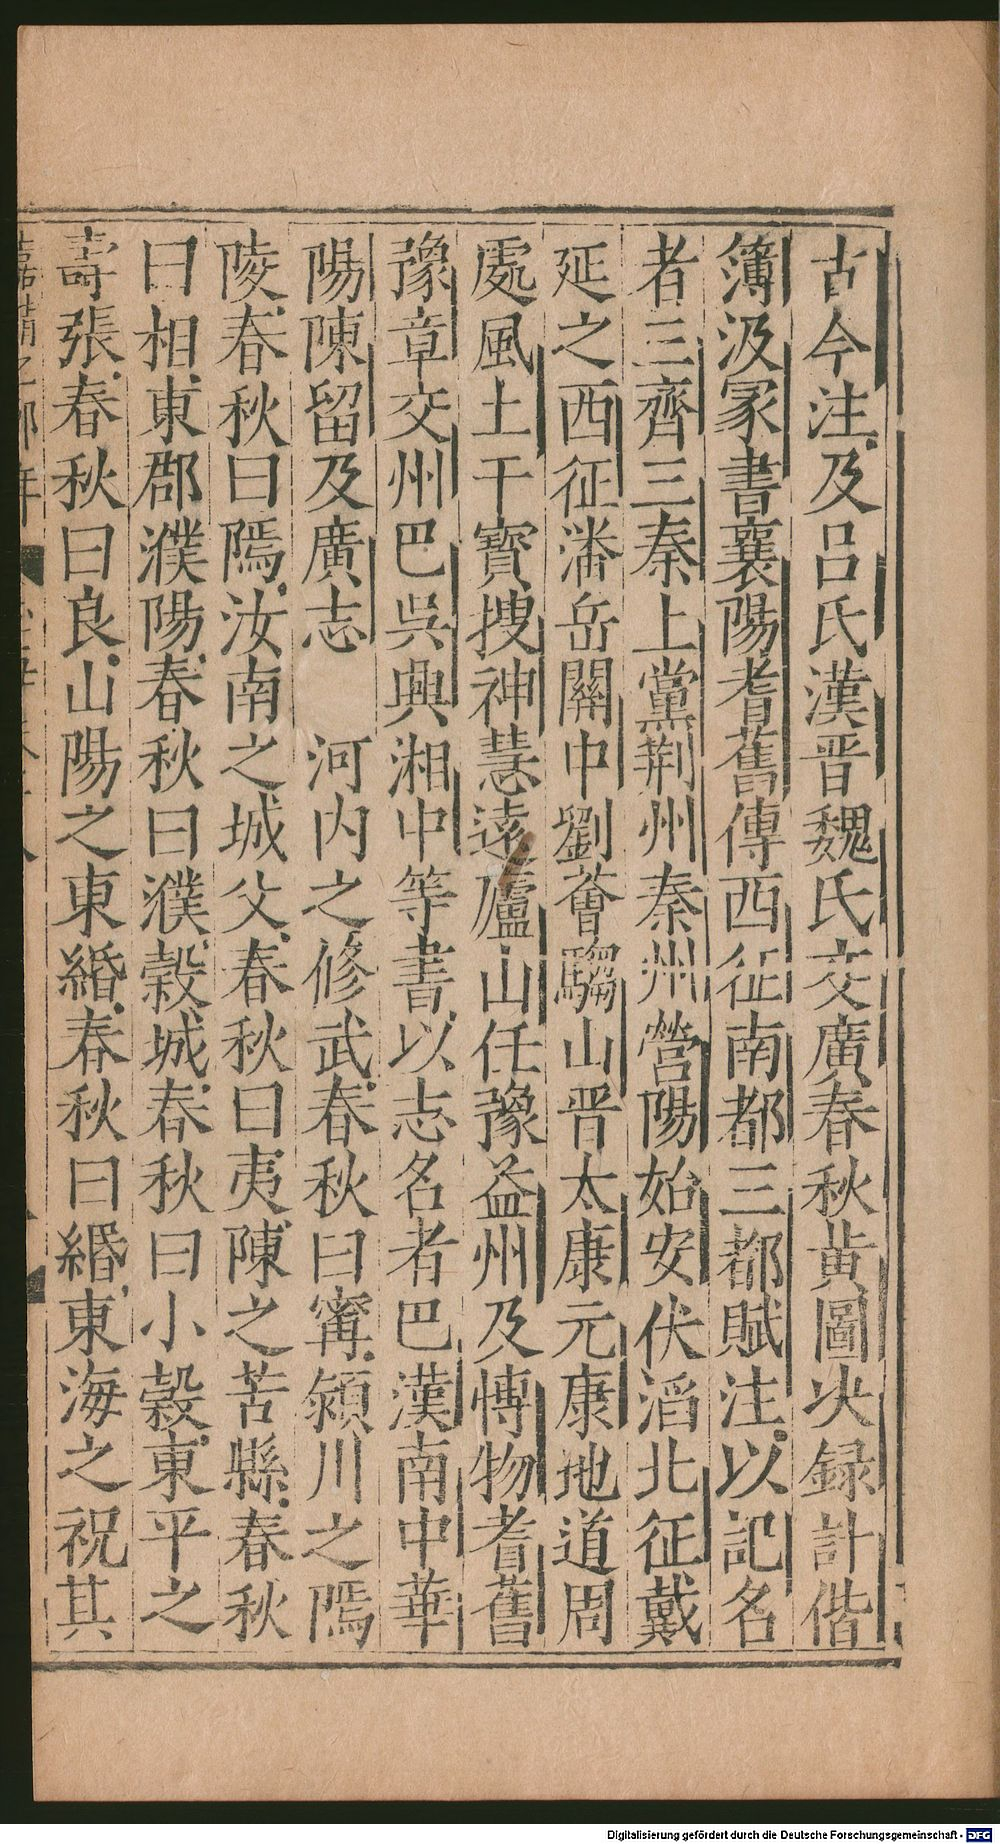 古今注及吕氏漢晋魏氏交廣春秋黄圖决録計偕
簿汲冢書襄陽耆舊傳西征南都三都賦注以記名
者三齊三秦上黨荆州秦州營陽始安伏滔北征戴
延之西征潘岳關中劉薈騶山晋太康元康地道周
處風土干寳搜神慧遠廬山任豫益州及博物耆舊
豫章交州巴呉興湘中等書以志名者巴漢南中華
陽陳留及廣志 河内之修武春秋曰寗潁川之隔
陵春秋曰隔汝南之城父春秋曰夷陳之苦縣春秋
曰相東郡濮陽春秋曰濮穀城春秋曰小穀東平之
壽張春秋曰良山陽之東緡春秋曰緡東海之祝其
Digitalisierung gefördert durch die Deutsche Forschungsgemeinschaft - DFG